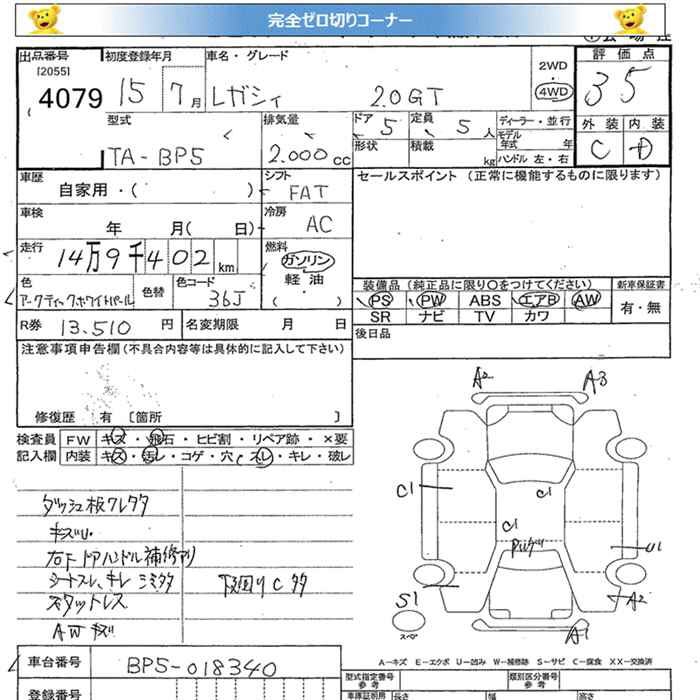 完全ゼロ切りコーナー
出品番号 初度登録年月 車名・グレード
[2055]
4079 15 7月 レガシィ 2.0GT
2WD
・
4WD
評価点
3.5
外装 内装
C D
型式 排気量 ドア 定員 ディーラー・並行
TA-BP5 2.000cc 5 5人
モデル年式 年
形状 積載 kg ハンドル 左・右
車歴 シフト セールスポイント (正常に機能するものに限ります)
自家用・( ) FAT
車検 冷房
年 月( 日) AC
走行 燃料
14万9千402km ガソリン
軽油
・( )
色 色替 色コード
アークティックホワイトパール 36J
装備品(純正品に限り○をつけてください) 新車保証書
PS PW ABS エアB AW 有・無
SR ナビ TV カワ
R券 13.510円 名変期限 月 日 後日品
注意事項申告欄(不具合内容等は具体的に記入して下さい)
修復歴 有 [箇所 ]
検査員 FW キズ・飛石・ヒビ割・リペア跡・×要
記入欄 内装 キズ・汚レ・コゲ・穴・スレ・キレ・破レ
ダッシュ板ワレタタ
キズU.
右F ドアハンドル補修アリ
シートスレ、キレ シミタタ 下回りCタタ
スタットレス
AWキズ
A2 A3
C1 C1
C1
U1
A2
S1
スペア
A1
A-キズ E-エクボ U-凹み W-補修跡 S-サビ C-腐食 XX-交換済
車台番号 BP5-018340
型式指定番号 類別区分番号
参考 参考
登録番号 長さ 幅 高さ